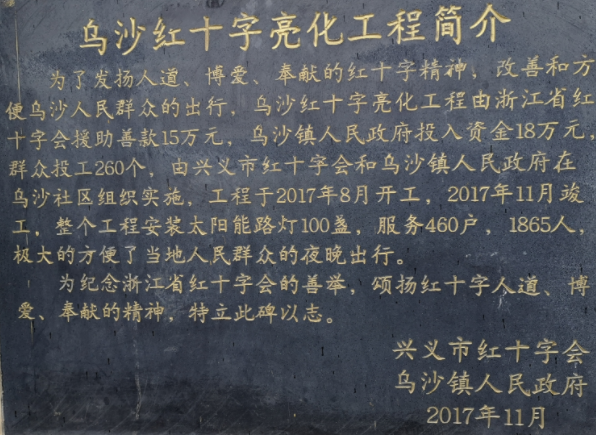 乌沙红十字亮化工程简介
为了发扬人道、博爱、奉献的红十字精神，改善和方
便乌沙人民群众的出行，乌沙红十字亮化工程由浙江省红
十字会援助善款15万元，乌沙镇人民政府投入资金18万元，
群众投工260个，由兴义市红十字会和乌沙镇人民政府在
乌沙社区组织实施，工程于2017年8月开工，2017年11月竣
工，整个工程安装太阳能路灯100盏，服务460户，1865人，
极大的方便了当地人民群众的夜晚出行。
为纪念浙江省红十字会的善举，颂扬红十字人道、博
爱、奉献的精神，特立此碑以志。
兴义市红十字会
乌沙镇人民政府
2017年11月